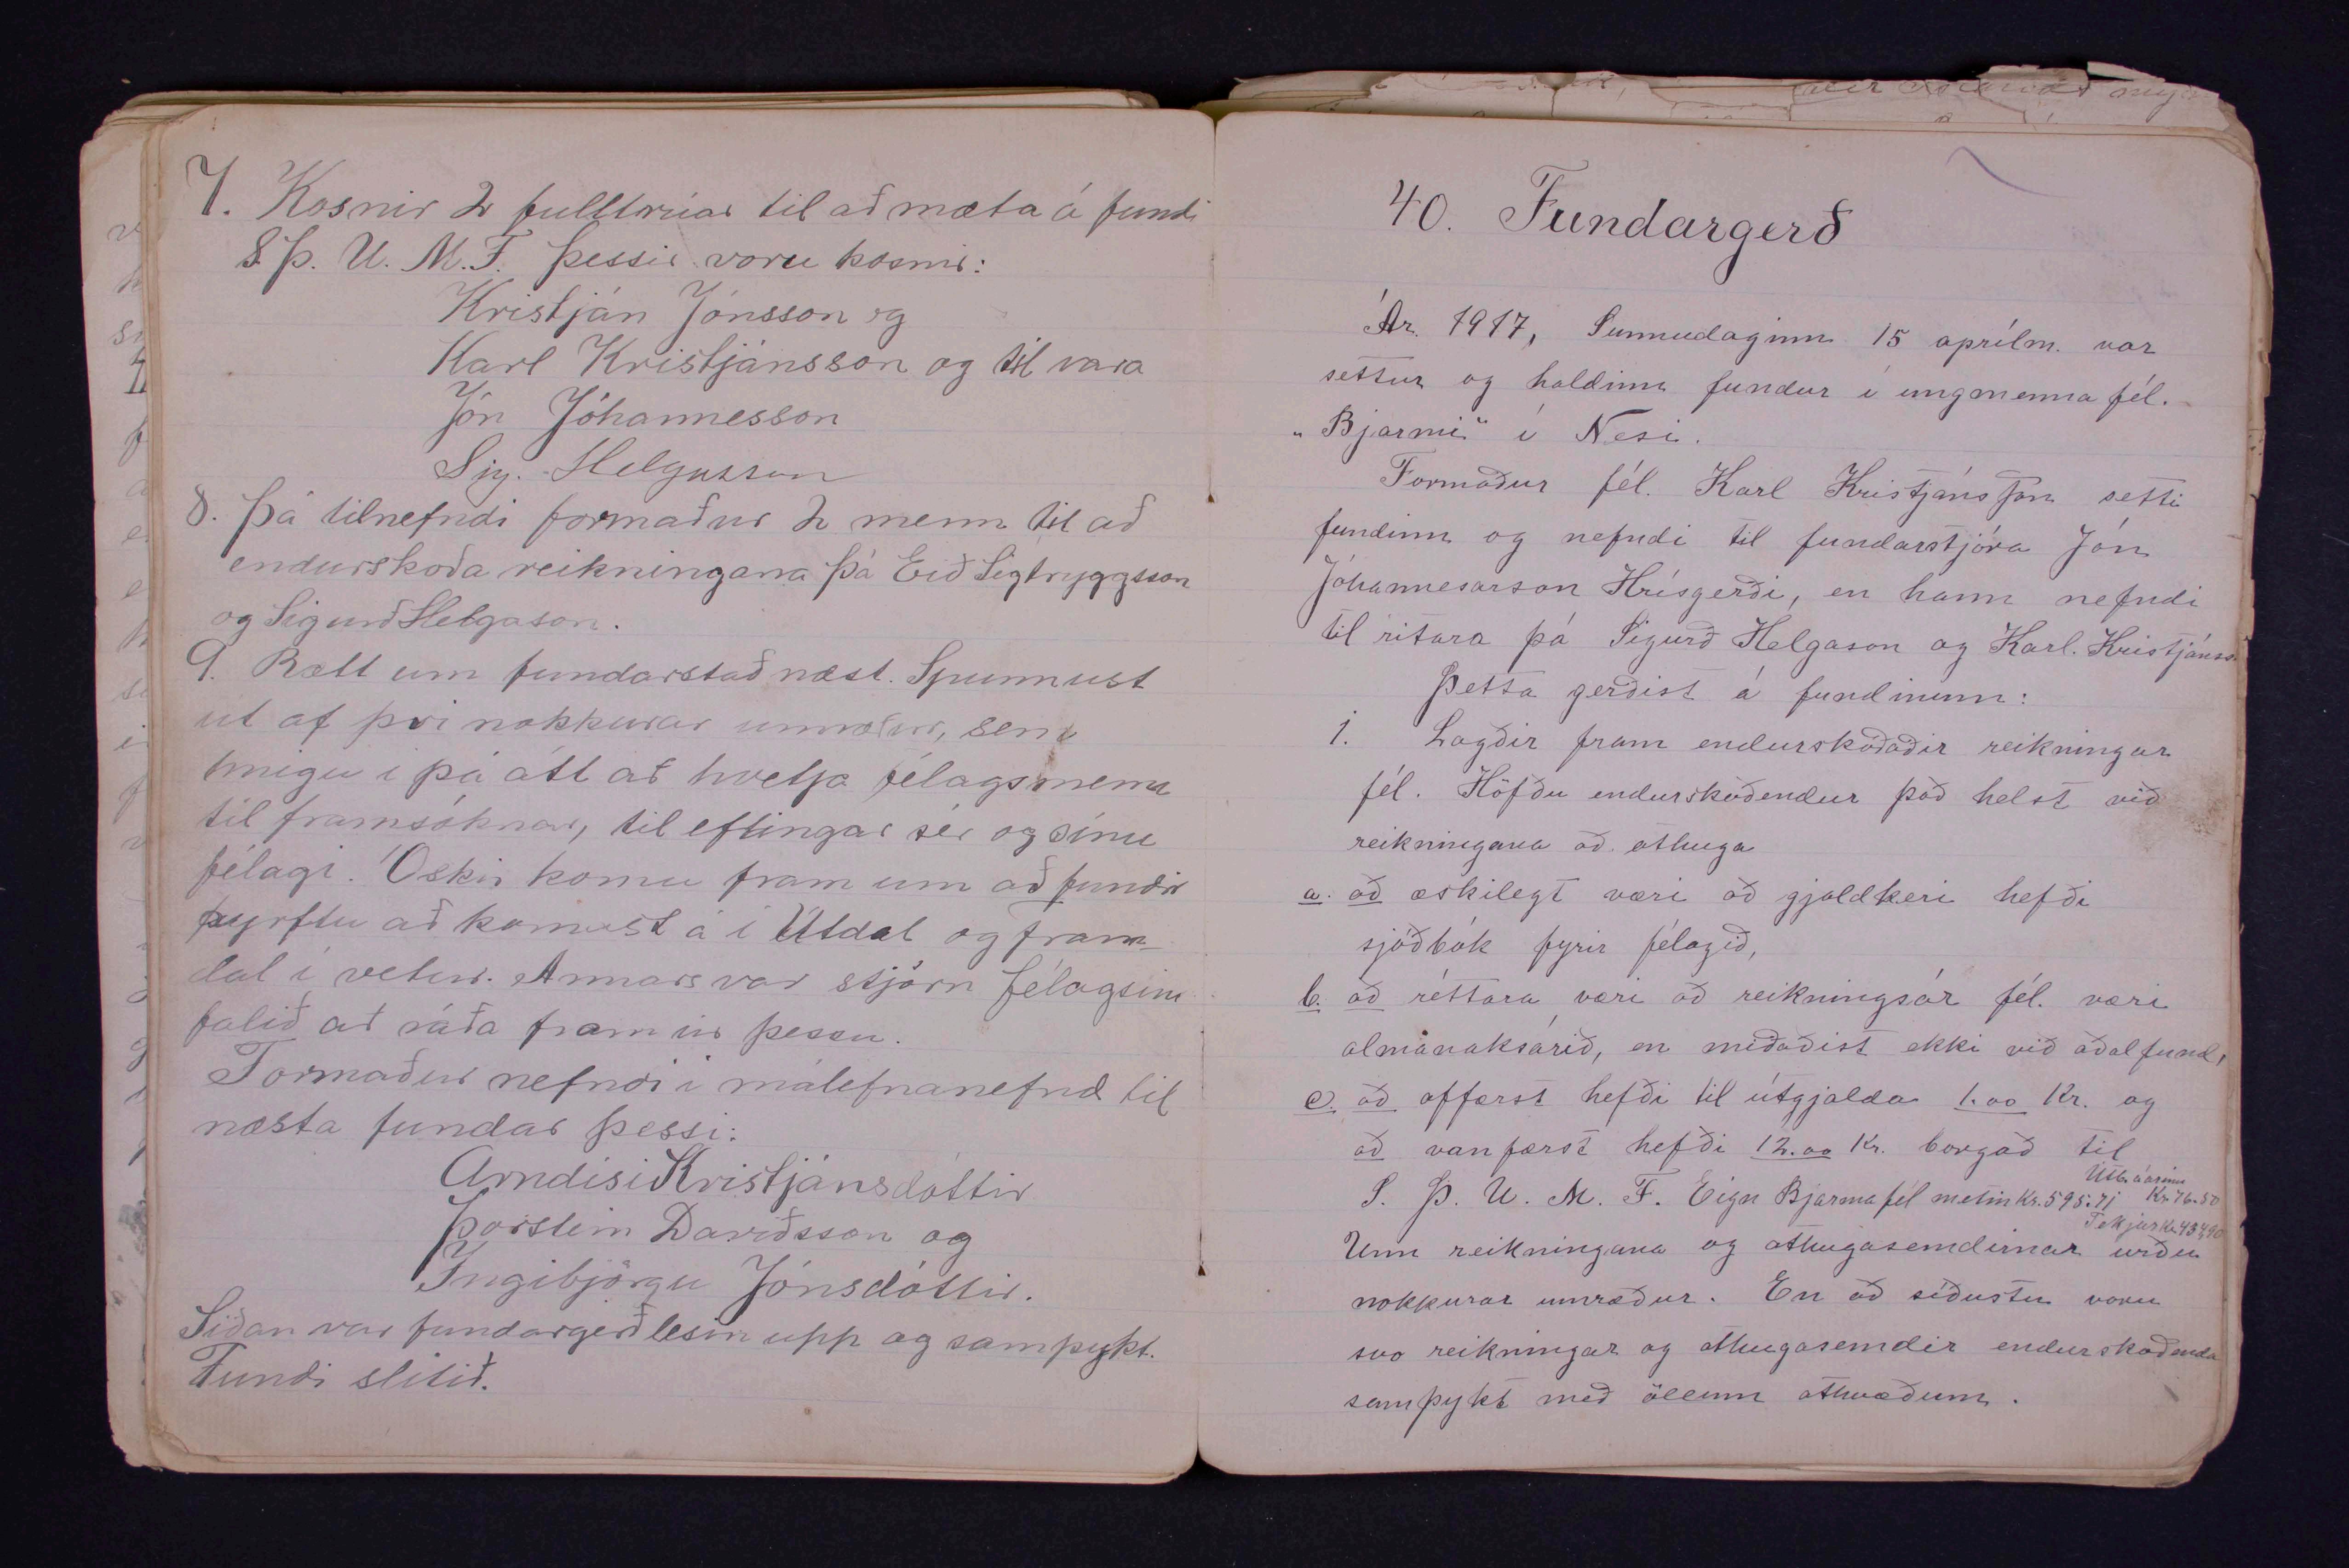 7. Kosnir 2 fulltrúar til að mæta á fundi
S. Þ. U. M. F. Þessir voru kosnir:
Kristján Jónsson og
Karl Kristjánsson og til vara
Jón Jóhannesson
Sig. Helgasson
8. Þá tilnefndi formaður 2 menn til að
endurskoða reikningana þá Eið Sigtryggsson
og Sigurð Helgason.
9. Rætt um fundarstað næst. Spunnust
út af því nokkurar umræður, sem
hnigu i þá átt að hvetja félagsmenn
til framsóknar, til eflingar sér og sínu
félagi. Óskir komu fram um að fundir
þyrftu að komast á i Útdal og fram-
dal í vetur. Annars var stjórn félagsins
falið að ráða fram úr þessu.
Formaður nefndi i málefnanefnd til
næsta fundar þessi:
Arndísi Kristjánsdóttir
Þorstein Davíðsson og
Ingibjörgu Jónsdóttir.
Síðan var fundargerð lesin upp og samþykt.
Fundi slitið.
40. Fundargerð
Ár. 1917, Sunnudaginn 15 aprílm. var
settur og haldinn fundur í ungmenna fél.
"Bjarmi" í Nesi.
Formaður fél. Karl Kristjánsson setti
fundinn og nefndi til fundarstjóra Jón
Jóhannesarson Hrísgerði, en hann nefndi
til ritara þá Sigurð Helgason og Karl. Kristjánss.
Þetta gerðist á fundinum:
1. Lagðir fram endurskoðaðir reikningar
fél. Höfðu endurskoðendur það helst við
reikningana að athuga
a. að æskilegt væri að gjaldkeri hefði
sjóðbók fyrir félagið,
b. að réttara væri að reikningsár fél. væri
almanaksárið, en miðaðist ekki við aðalfund,
c. að offærst hefði til útgjalda 1.00 Kr. og
að vanfærst hefði 12.00 Kr. borgað til
Útb. á árinu
S. Þ. U. M. F. Eign Bjarma fél metin Kr. 595.71 Kr. 76.50
Tekjur Kr. 434,90
Um reikningana og athugasemdirnar urðu
nokkurar umræður. En að síðustu voru
svo reikningar og athugasemdir endurskoðenda
samþykt með öllum atkvæðum.